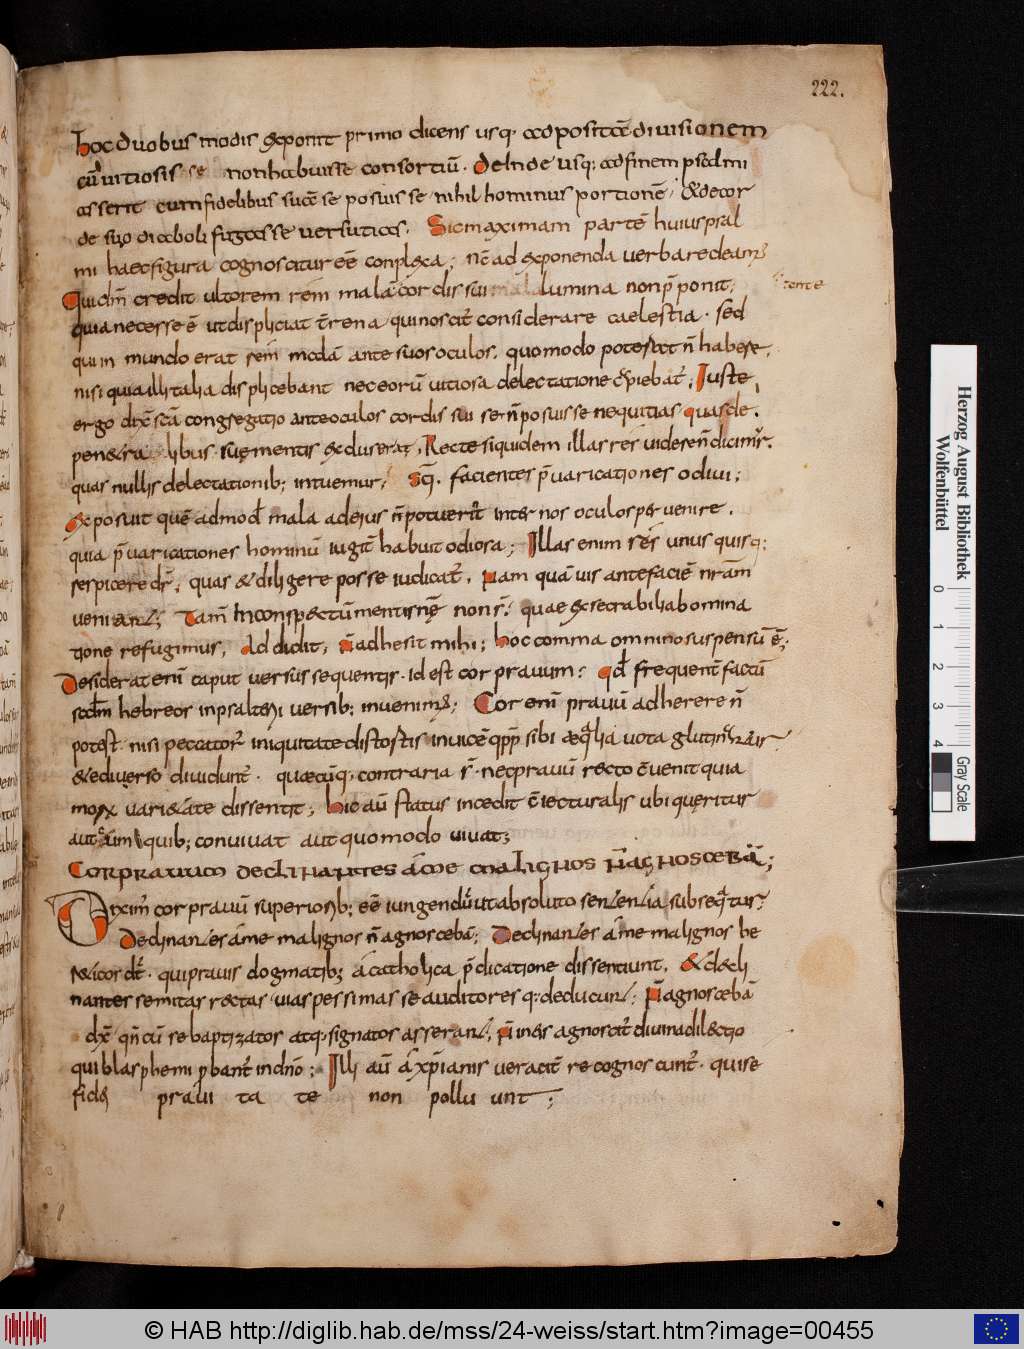 222.
hoc duobus modis exponit primo dicens usq· ad positā divisionem
cū uitiosis se non habuisse consortiū· deinde usq; ad finem psalmi
asserit cum fidelibus suā se posuisse nihil hominus portionē· & decor
de suo diaboli fugasse uersutias. Sic maximam partē huius psal
mi haec figura cognoscitur eē conplexa; nc̄ ad exponenda uerba redeam;
Quidm̄ credit ultorem rem malā cor dis sui lumina non p̄ponit,
tente
quia necesse ē ut displiciat t̄rena qui noscit̄ considerare caelestia· sed
qui in mundo erat rem modā ante suos oculos, quomodo potest n̄ habere,
nisi quia illi talia displicebant nec eorū uitiosa delectatione c̄piebat̄; Iuste
ergo dix̄ scā congregatio ante oculos cordis sui se n̄ posuisse nequitias quas de
pen&ra libus suę mentis excluserat, Recte siquidem illas res uidere n̄ dicimur,
quas nullis delectationib; intuemur; Sq̄. facientes p̄uaricationes odiui;
Exposuit quē admod̄ mala ad eius n̄ potuerit inter nos oculos peruenire.
quia p̄uaricationes hominū iugit̄ habuit odiosa; Illas enim res unus quisq;
respicere dr̄, quas & diligere posse iudicat̄. Nam quā uis ante faciē nrām
ueniant; Tam̄ in conspectū mentis nrę non s̄. quae execrabili abomina
tione refugimus, Addidit, N̄ adhesit mihi; hoc comma omnino suspensū ē;
Desiderat eni caput uersus sequentis· id est cor prauum: qd̄ frequent̄ factū
scdm̄ hebreos in psalterii uersib; inuenim;; Cor eni prauū adherere n̄
potest· nisi peccator̄ iniquitate distostis inuicē qpp̄ sibi aequalia uota glutin
& ediuerso diuidunt̄. quaecūq· contraria s̄· nec prauū recto c̄uenit quia
mox uari&ate dissentit; hic aū status incedit c̄iecturalis ubi quęritur
aut cum quib; conuiuat aut quomodo uiuat;
Cor prauum declinantes a me malignos n̄ agnoscebā;
Diximus cor prauū superiorib; eē iungendū ut absoluto sententia subsequatur;
Declinantes á me malignos n̄ agnoscebā; Declinantes á me malignos he
r&icos dt̄· qui prauis dogmatib; á catholica p̄dicatione dissentiunt, & decli
nantes semitas rectas· uias pessimas se auditoresq; deducunt; N̄ agnoscebā
dx̄ qn̄ cū se baptizatos atq; signatos asserant, N̄ in eis agnoscit̄ diuina dilectio
qui blasphemi pbant̄ in dn̄o; Illi aū á xp̄ianis ueracit̄ re cognoscunt̄· qui se
fidei praui ta te non pollu unt;
Herzog August Bibliothek
Wolfenbüttel
0 1 2 3 4
Gray Scale
© HAB http://diglib.hab.de/mss/24-weiss/start.htm?image=00455